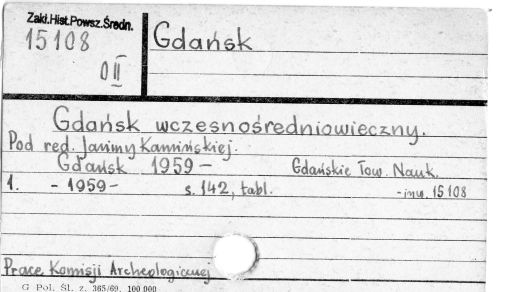 Zakł.Hist.Powsz.Średn.
15108
0II
Gdańsk
Gdańsk wczesnośredniowieczny.
Pod red. Janiny Kamińskiej.
Gdańsk 1959 – Gdańskie Tow. Nauk.
1. - 1959 - s. 142, tabl. - inw. 15108
Prace Komisji Archeologicznej
G Pol. Śl. z. 365/69. 100 000